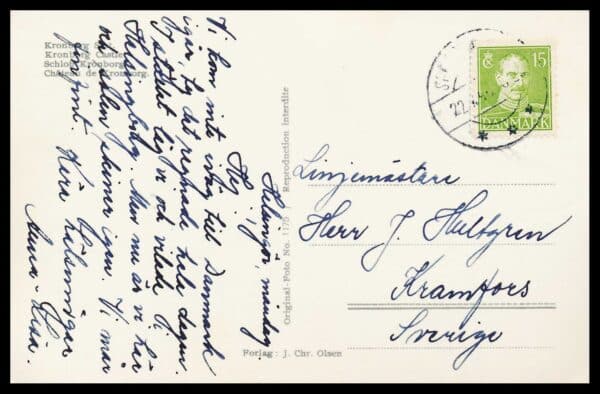 Kronborg Slot.
Kronborg Castle.
Schloss Kronborg.
Château de Kronborg.
Helsingör, måndag.
Hej!
Vi kom inte iväg till Danmark
igår, ty det regnade hela dagen.
I stället låg vi och vilade i
Helsingborg. Men nu är vi här
och solen skiner igen. Vi mår
jättefint. Kära hälsningar
Anna-Lisa.
Original-Foto No. 1175 Reproduction Interdite
Forlag: J. Chr. Olsen
15
DANMARK
22.
Linjemästare
Herr J. Hultgren
Kramfors
Sverige